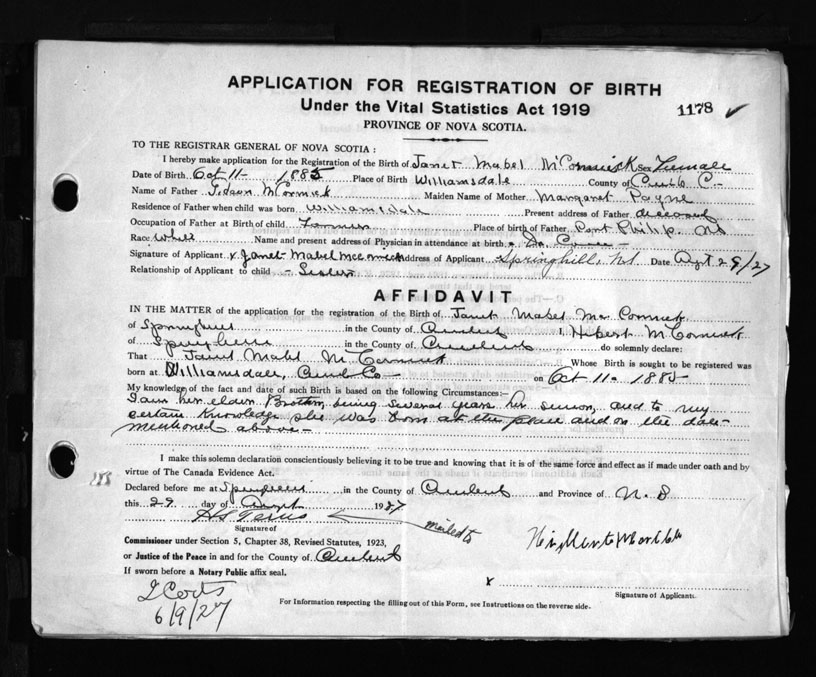 APPLICATION FOR REGISTRATION OF BIRTH
Under the Vital Statistics Act 1919
1178 ✓
PROVINCE OF NOVA SCOTIA.
TO THE REGISTRAR GENERAL OF NOVA SCOTIA :
I hereby make application for the Registration of the Birth of Janet Mabel McCormick Sex Female
Date of Birth Oct 11- 1885 Place of Birth Williamsdale County of Cumb C-
Name of Father Gideon McCormick Maiden Name of Mother Margaret Payne
Residence of Father when child was born Williamsdale Present address of Father deceased
Occupation of Father at Birth of child Farmer Place of birth of Father Port Philip, NS
Race White Name and present address of Physician in attendance at birth Dr.
Signature of Applicant x Janet Mabel McCormick Address of Applicant Springhill, NS Date Augt 29/27
Relationship of Applicant to child -
AFFIDAVIT
IN THE MATTER of the application for the registration of the Birth of Janet Mabel McCormick
of Springhill in the County of Cumberland I, Hibert McCormick
of Springhill in the County of Cumberland do solemnly declare:
That Janet Mabel McCormick Whose Birth is sought to be registered was
born at Williamsdale, Cumb Co- on Oct 11- 1885
My knowledge of the fact and date of such Birth is based on the following Circumstances:—
I am her eldern Brother, being several years her senior, and to my
certain knowledge she was born at the place and on the date
mentioned above-
I make this solemn declaration conscientiously believing it to be true and knowing that it is of the same force and effect as if made under oath and by
188
virtue of The Canada Evidence Act.
Declared before me at Springhill in the County of Cumberland and Province of N.S
this 29 day of Augt 1927
mailed to
Signature of
Commissioner under Section 5, Chapter 38, Revised Statutes, 1923,
or Justice of the Peace in and for the County of Cumberland
If sworn before a Notary Public affix seal.
x
Signature of Applicant.
6/9/27
For Information respecting the filling out of this Form, see Instructions on the reverse side.